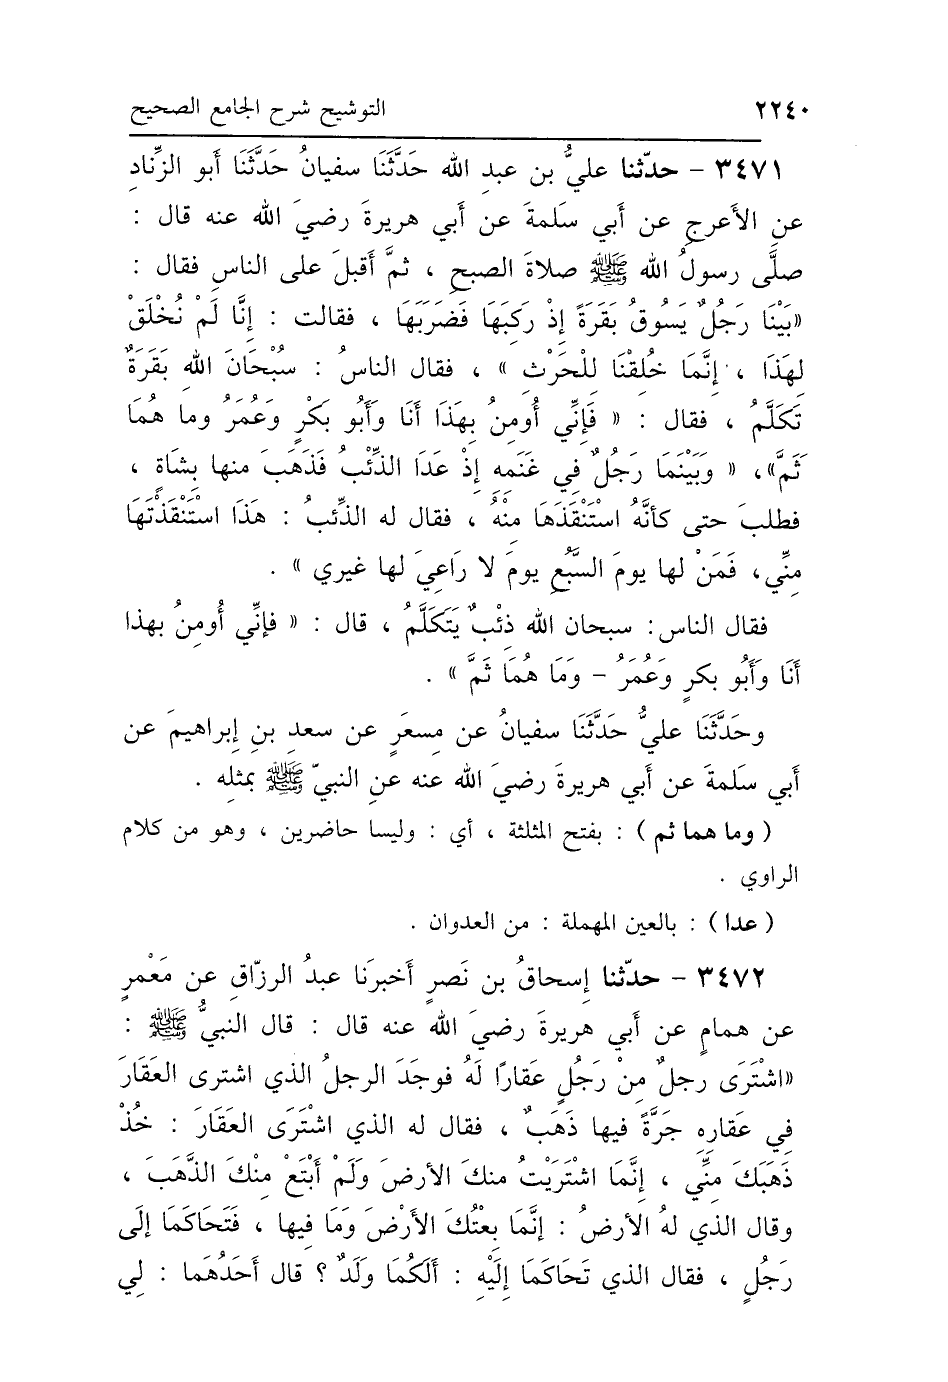 ٢٢٤٠ التوشيح شرح الجامع الصحيح
٣٤٧١ - حدّثنا عليُّ بن عبدِ الله حَدَّثَنَا سفيانُ حَدَّثَنَا أبو الزِّنادِ
عن الأَعرجِ عن أَبي سَلمةَ عن أَبي هريرةَ رضيَ اللهُ عنه قال :
صلَّى رسولُ الله ﷺ صلاةَ الصبحِ ، ثمَّ أقبلَ على الناسِ فقال :
«بَيْنَا رَجُلٌ يَسُوقُ بَقَرَةً إذْ رَكِبَهَا فَضَرَبَهَا ، فقالت : إنَّا لَمْ نُخْلَقْ
لِهَذَا ، إنَّمَا خُلِقْنَا لِلْحَرْثِ » ، فقال الناسُ : سُبْحَانَ اللهِ بَقَرَةٌ
تَكَلَّمُ ، فقال : « فَإنِّي أُومِنُ بِهَذَا أَنَا وَأَبُو بَكْرٍ وَعُمَرُ وما هُمَا
ثَمَّ»، « وَبَيْنَمَا رَجُلٌ في غَنَمِهِ إذْ عَدَا الذِّئْبُ فَذَهَبَ منها بِشَاةٍ ،
فطلبَ حتى كأنَّهُ اسْتَنْقَذَهَا مِنْهُ ، فقال له الذِّئبُ : هَذَا اسْتَنْقَذْتَهَا
مِنِّي، فَمَنْ لها يومَ السَّبُعِ يومَ لا رَاعِيَ لها غيري » .
فقال الناس: سبحان الله ذِئْبٌ يَتَكَلَّمُ ، قال : « فإنِّي أُومنُ بهذا
أَنَا وَأَبُو بكرٍ وَعُمَرُ - وَمَا هُمَا ثَمَّ » .
وحَدَّثَنَا عليُّ حَدَّثَنَا سفيانُ عن مِسعَرٍ عن سعدِ بنِ إبراهيمَ عن
أبي سَلمةَ عن أَبي هريرةَ رضيَ الله عنه عنِ النبيّ ﷺ بمثله .
( وما هما ثم ) : بفتح المثلثة ، أي : وليسا حاضرين ، وهو من كلام
الراوي .
( عدا ) : بالعين المهملة : من العدوان .
٣٤٧٢ - حدّثنا إسحاقُ بن نَصرٍ أَخبرنَا عبدُ الرزّاقِ عن مَعْمرٍ
عن همامٍ عن أَبي هريرةَ رضيَ اللهُ عنه قال : قال النبيُّ ﷺ :
«اشْتَرَى رجلٌ مِنْ رَجُلٍ عقارًا لَهُ فوجَدَ الرجلُ الذي اشترى العقَارَ
فِي عقارِهِ جَرَّةً فيها ذَهَبٌ ، فقال له الذي اشْتَرَى العَقَارَ : خُذْ
ذَهَبَكَ مِنِّي ، إنَّمَا اشْتَرَيْتُ منكَ الأرضَ وَلَمْ أَبْتَعْ مِنْكَ الذَّهَبَ ،
وقال الذي لهُ الأرضُ : إنَّمَا بِعْتُكَ الأَرْضَ وَمَا فِيها ، فَتَحَاكَمَا إلَى
رَجُلٍ ، فقال الذي تَحَاكَمَا إلَيْهِ : أَلَكُمَا ولَدٌ ؟ قال أَحَدُهُمَا : لِي